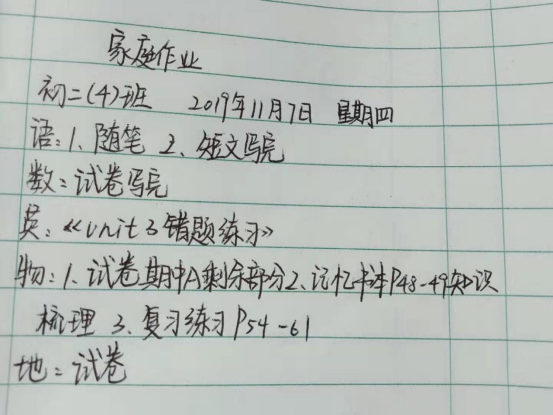 家庭作业
初二(4)班 2019年11月7日 星期四
语:1、随笔 2、短文写完
数:试卷写完
英:《unit 3 错题练习》
物:1、试卷期中A剩余部分2、记忆书本P48-49知识
梳理 3、复习练习P54-61
地:试卷